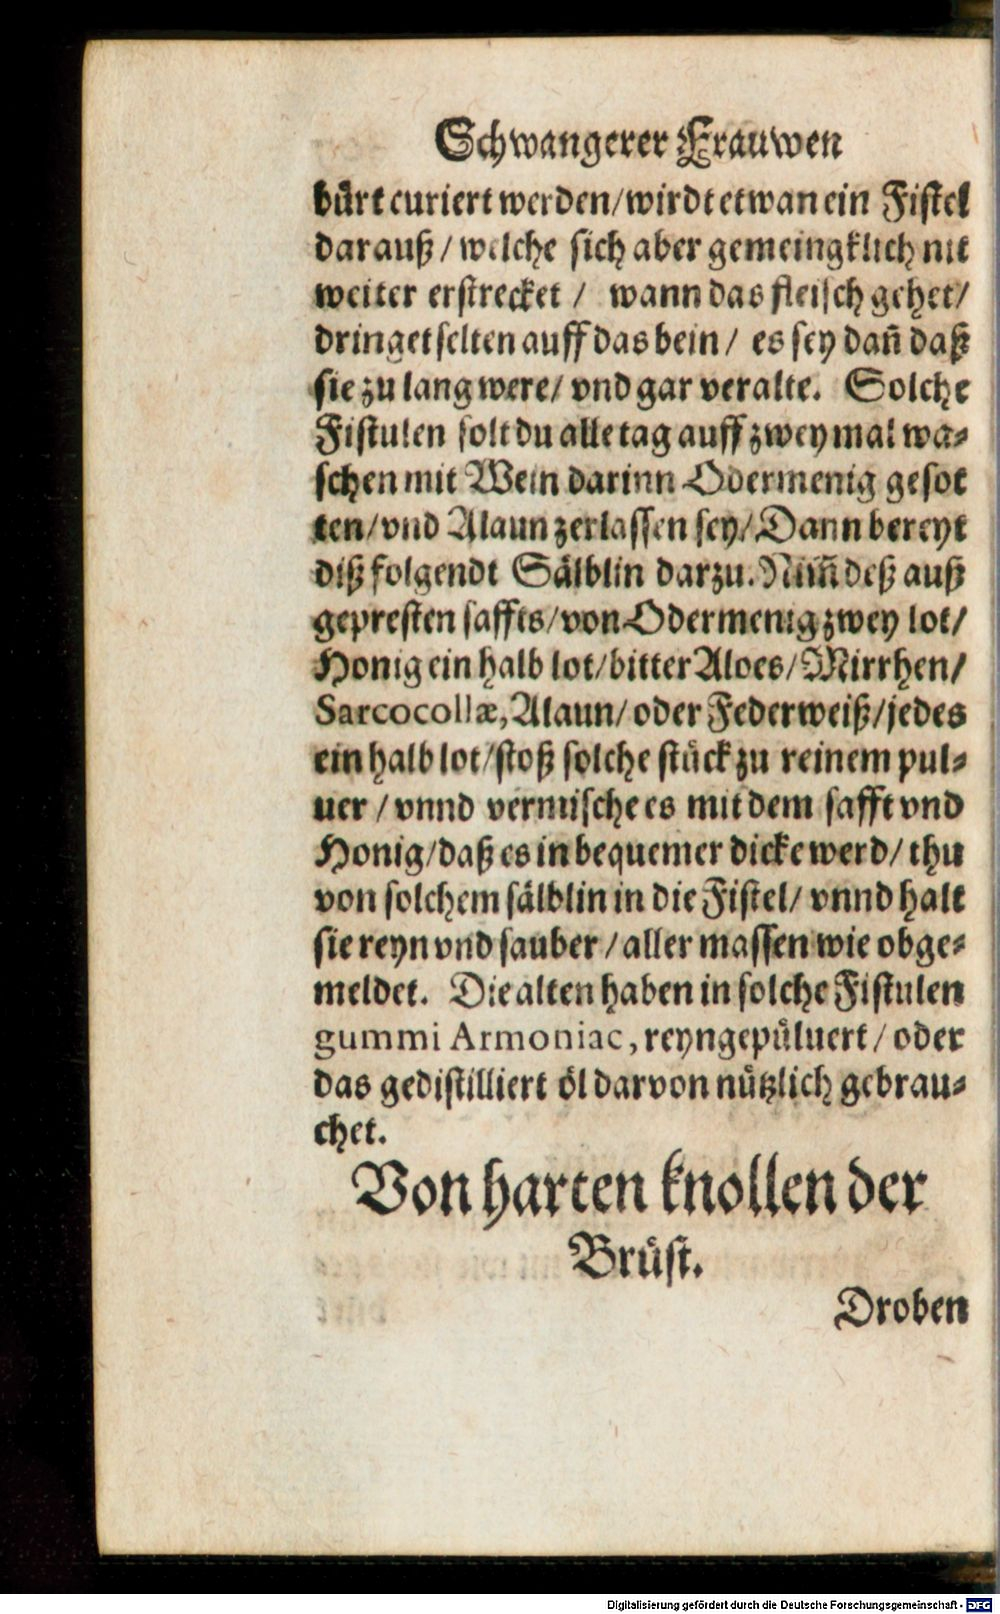 Schwangerer Frauwen
bürt curiert werden/wirdt etwan ein Fistel
darauß/welche sich aber gemeingklich nit
weiter erstrecket / wann das fleisch gehet/
dringet selten auff das bein/ es sey dañ daß
sie zu lang were/ vnd gar veralte. Solche
Fistulen solt du alle tag auff zwey mal wa-
schen mit Wein darinn Odermenig gesot
ten/vnd Alaun zerlassen sey/Dann bereyt
diß folgendt Sälblin darzu. Nim̃ deß auß
gepresten saffts/von Odermenig zwey lot/
Honig ein halb lot/bitter Aloes/Mirrhen/
Sarcocollæ, Alaun/oder Federweiß/jedes
ein halb lot/stoß solche stück zu reinem pul-
uer /vnnd vermische es mit dem safft vnd
Honig/daß es in bequemer dicke werd/ thu
von solchem sälblin in die Fistel/ vnnd halt
sie reyn vnd sauber/aller massen wie obge-
meldet. Die alten haben in solche Fistulen
gummi Armoniac, reyngepüluert/oder
das gedistilliert öl darvon nützlich gebrau-
chet.
Von harten knollen der
Brüst.
Droben
Digitalisierung gefördert durch die Deutsche Forschungsgemeinschaft - DFG